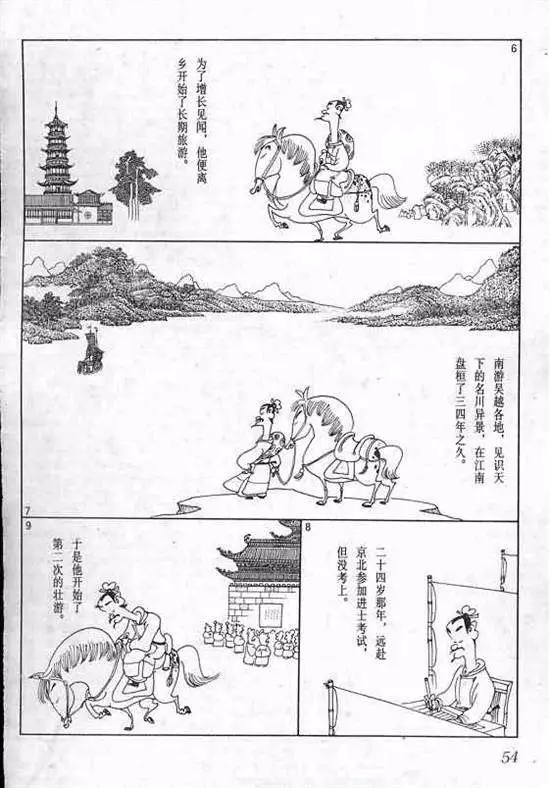 6
为了增长见闻，他便离
乡开始了长期旅游。
7
南游吴越各地，见识天
下的名川异景，在江南
盘桓了三四年之久。
8
二十四岁那年，远赴
京北参加进士考试，
但没考上。
9
于是他开始了
第二次的壮游。
54